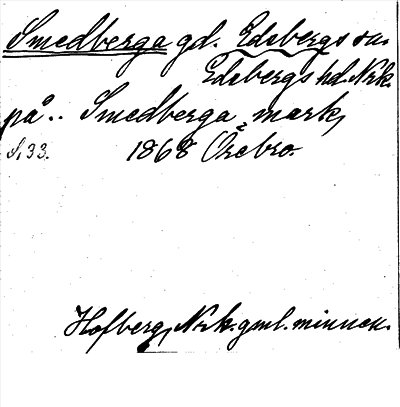 Smedberga gd. Edsbergs sn.
Edsbergs hd. Nrk.
på.. Smedberga mark,
S. 33. 1868 Örebro.
Hofberg, Nrk. gml. minnen.